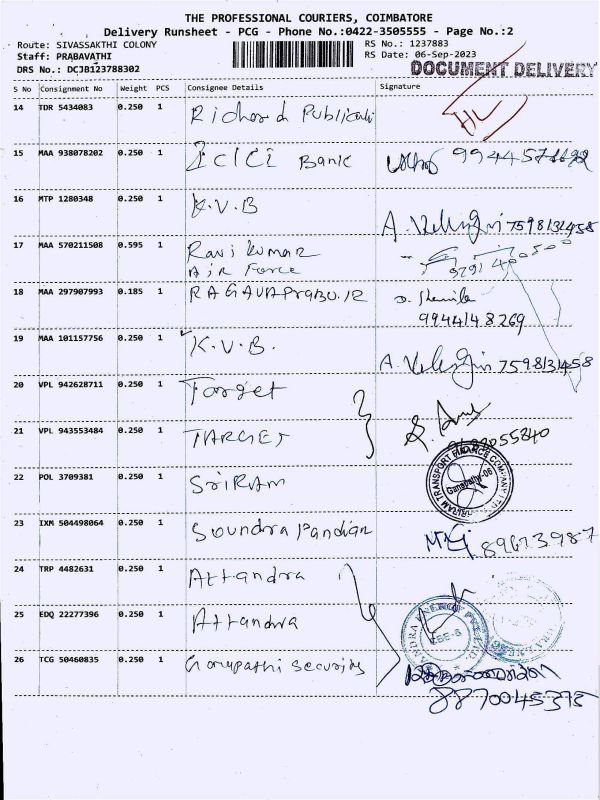 THE PROFESSIONAL COURIERS, COIMBATORE
Delivery Runsheet - PCG - Phone No.:0422-3505555 - Page No.:2
Route: SIVASSAKTHI COLONY
Staff: PRABAVATHI
DRS No.: DCJB123788302
RS No.: 1237883
RS Date: 06-Sep-2023
DOCUMENT DELIVERY
S No Consignment No Weight PCS Consignee Details Signature
14 TDR 5434083 0.250 1
15 MAA 938078202 0.250 1 ICICI Bank
16 MTP 1280348 0.250 1 K.V.B 7598131458
17 MAA 570211508 0.595 1 Ravi Kumar
Air Force
18 MAA 297907993 0.185 1 RAGAVAPrabu
9944148269
19 MAA 101157756 0.250 1 K.V.B. 7598131458
20 VPL 942628711 0.250 1 Target
21 VPL 943553484 0.250 1 TARGET
22 POL 3709381 0.250 1 SRIRAM
23 IXM 504498064 0.250 1 Soundra Pandian
24 TRP 4482631 0.250 1 Attandra
25 EDQ 22277396 0.250 1 Attandra
26 TCG 50460835 0.250 1 Ganapathi Security
8870045375